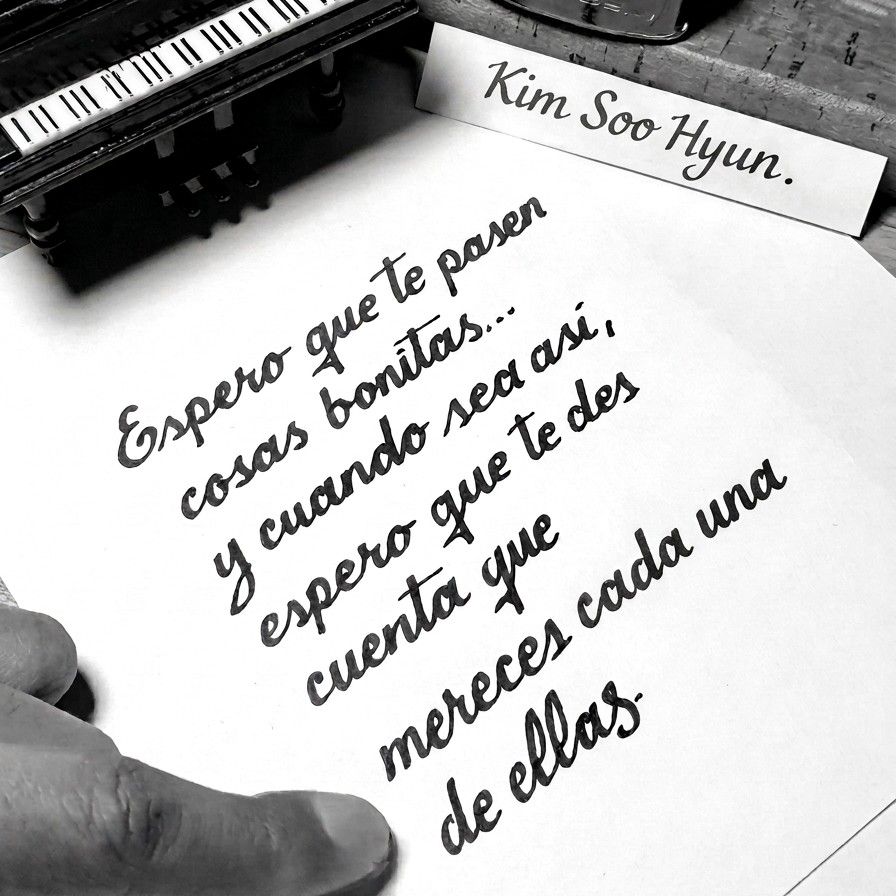 Kim Soo Hyun.
Espero que te pasen
cosas bonitas...
y cuando sea así,
espero que te des
cuenta que
mereces cada una
de ellas.